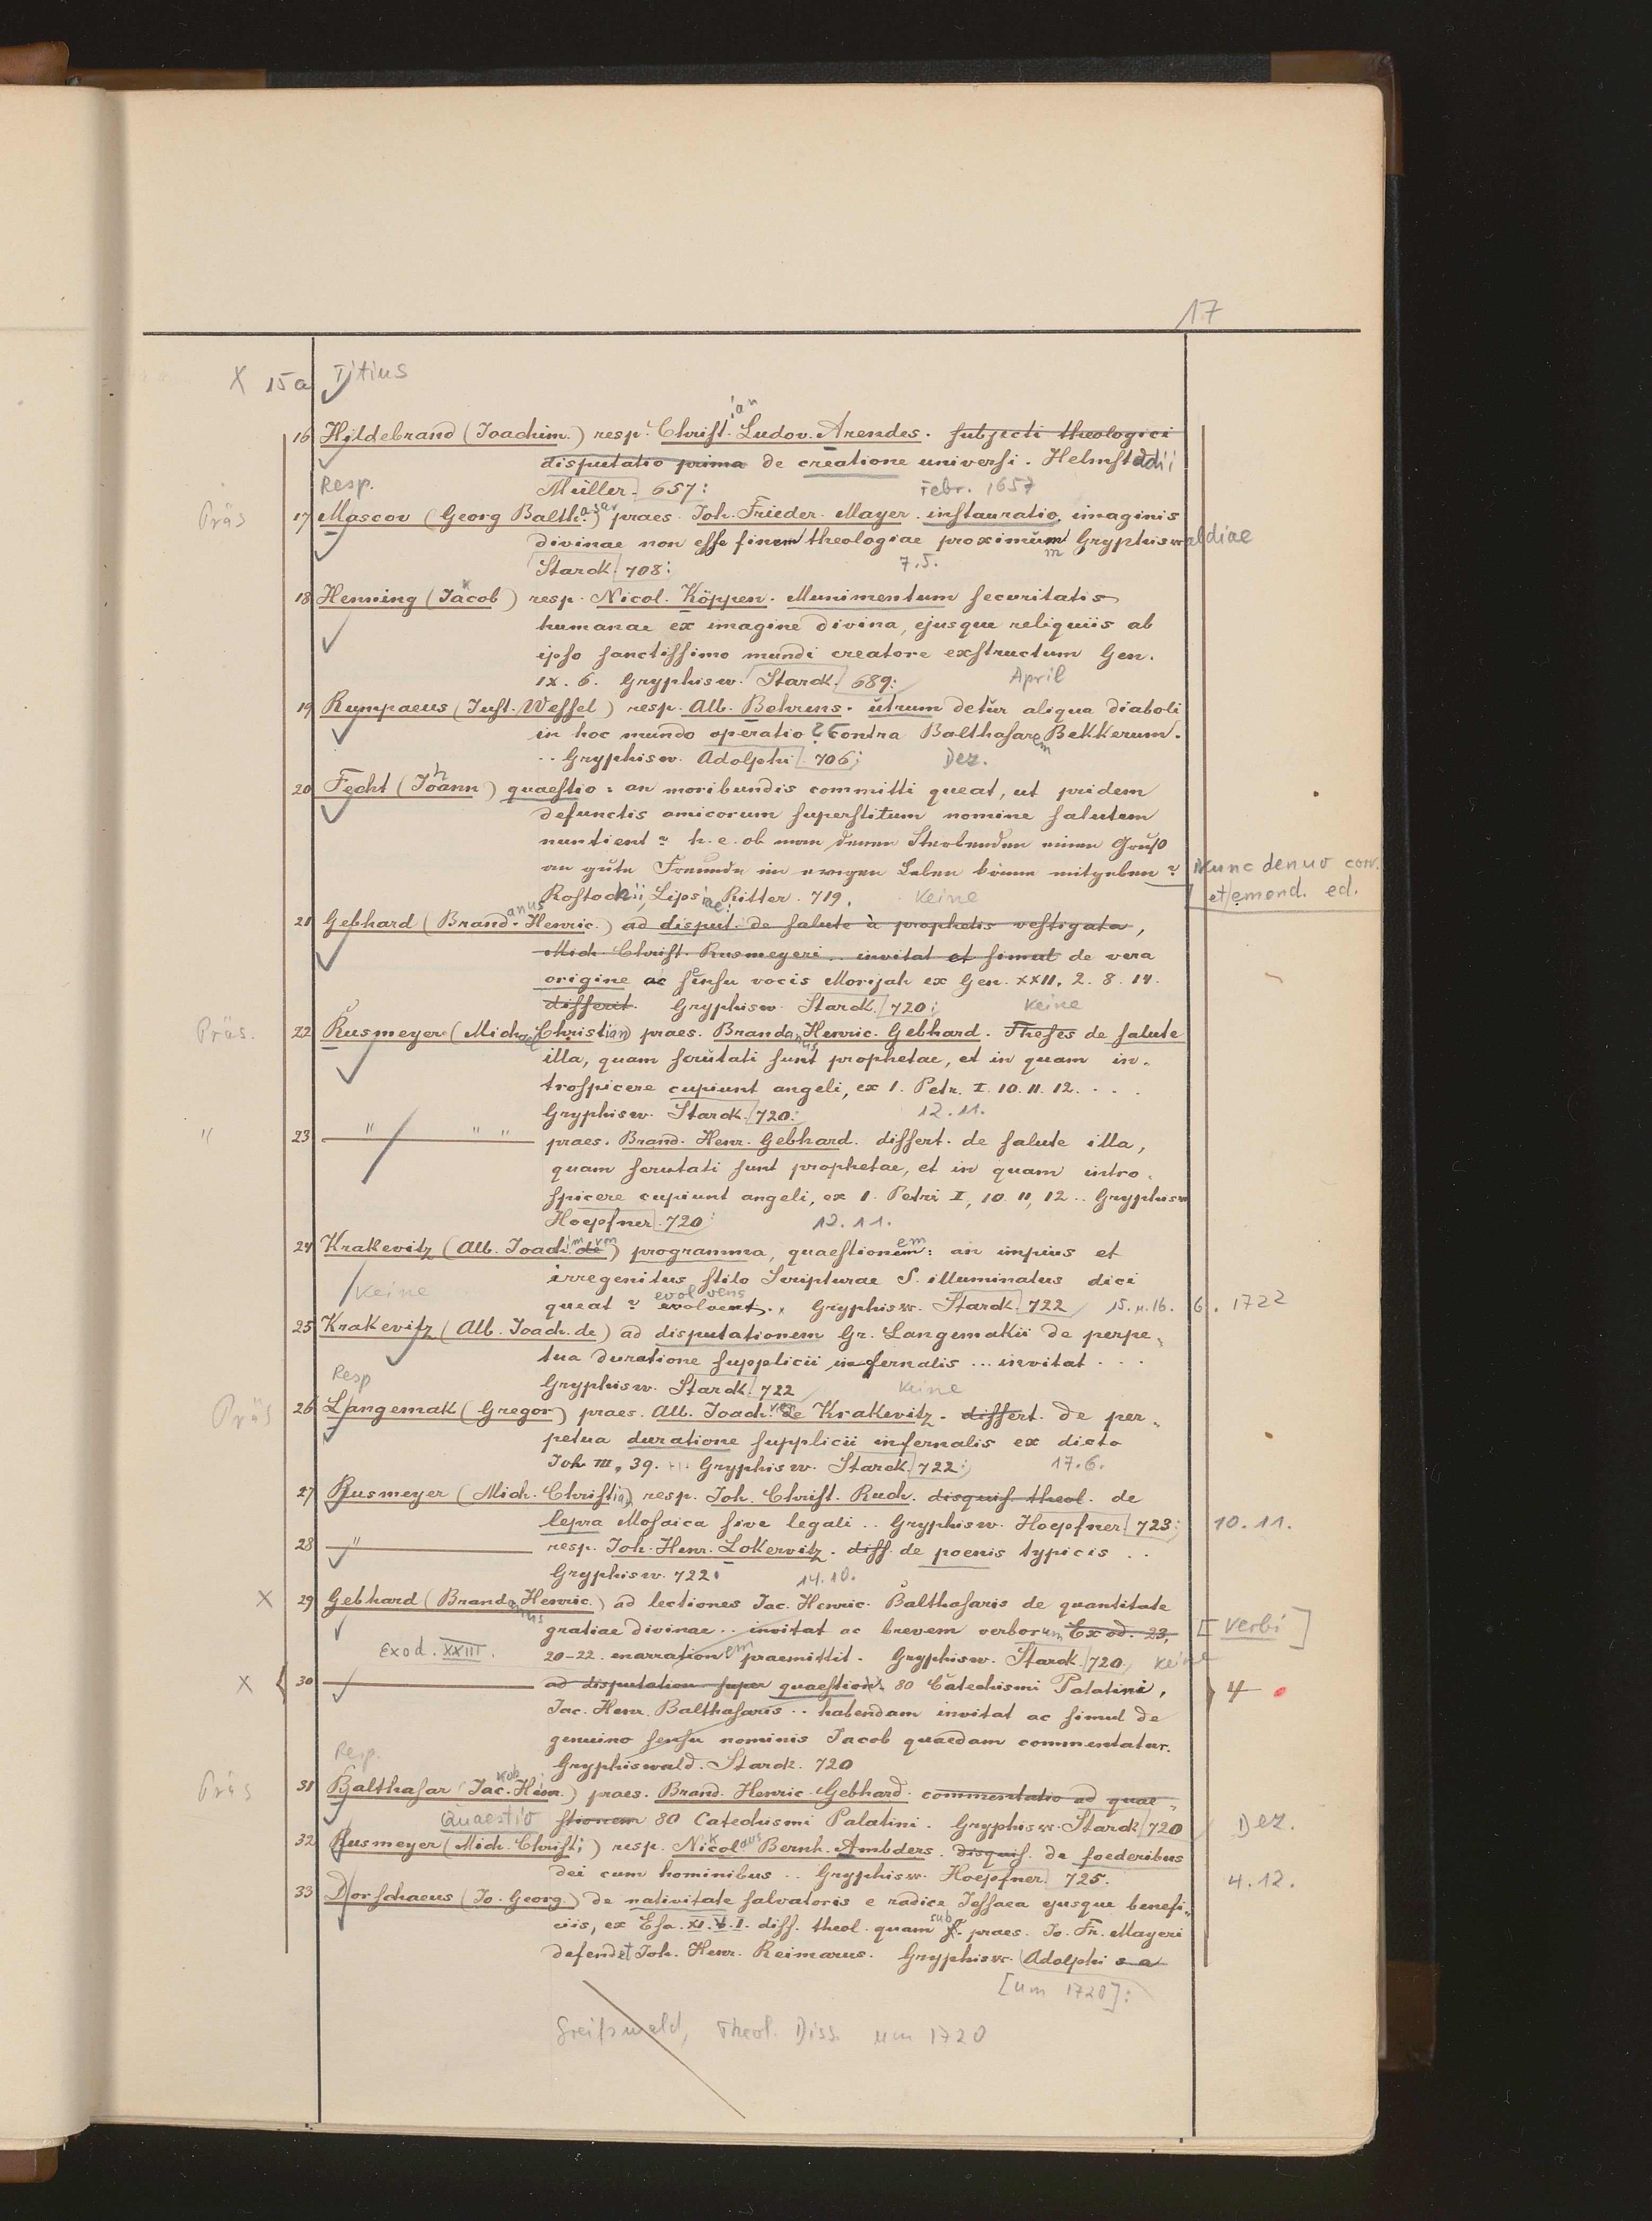 17
X 15a Titius
16 Hildebrand (Joachim.) resp. Christian Ludov. Arendes. subjecti theologici
disputatio prima de creatione universi. Helmstadii
Resp. Müller. 657: Febr. 1657
Präs 17 Mascov (Georg Balthasar) praes. Joh. Frieder. Mayer. instauratio imaginis
divinae non esse finem theologiae proximum Gryphiswaldiae
Starck. 708: 7.5.
18 Henning (Jakob) resp. Nicol. Köppen. Munimentum securitatis
humanae ex imagine divina, ejusque reliquiis ab
ipso sanctissimo mundi creatore exstructum Gen.
IX. 6. Gryphisw. Starck. 689: April
19 Rumpaeus (Just. Wessel) resp. Alb. Behrens. utrum detur aliqua diaboli
in hoc mundo operatio? Contra Balthasarem Bekkerum.
.. Gryphisw. Adolphi. 706; Dez.
20 Fecht (Johann) quaestio: an moribundis committi queat, ut pridem
defunctis amicorum superstitum nomine salutem
nuntient? h. e. ob man denen Sterbenden einen Gruß
an gute Freunde im ewigen Leben könne mitgeben? Nunc denuo corr.
et emend. ed.
Rostochii, Lipsiae: Ritter. 719. keine
21 Gebhard (Brandanus Henric.) ad disput. de salute à prophetis vestigata,
Mich. Christ. Rusmeyeri .. invitat et simul de vera
origine ac sensu vocis Morijah ex Gen. XXII, 2. 8. 14.
disserit. Gryphisw. Starck. 720; keine
Präs. 22 Rusmeyer (Michael Christian) praes. Brandanus Henric. Gebhard. Theses de salute
illa, quam scrutati sunt prophetae, et in quam in-
trospicere cupiunt angeli, ex 1. Petr. I. 10. 11. 12. . . .
Gryphisw. Starck. 720: 12. 11.
" 23 — " " " praes. Brand. Henr. Gebhard. dissert. de salute illa,
quam scrutati sunt prophetae, et in quam intro-
spicere cupiunt angeli, ex 1. Petri I, 10. 11, 12 .. Gryphisw
Hoepfner. 720: 12. 11.
24 Krakevitz (Alb. Joachim von) programma, quaestionem: an impius et
irregenitus stilo Scripturae S. illuminatus dici
keine queat? evolvens. Gryphisw. Starck. 722 15. u. 16. 6. 1722
25 Krakevitz (Alb. Joach. de) ad disputationem Gr. Langemakii de perpe-
tua duratione supplicii infernalis ... invitat . . .
Resp Gryphisw. Starck. 722 keine
Präs 26 Langemak (Gregor) praes. Alb. Joach. von de Krakevitz. dissert. de per-
petua duratione supplicii infernalis ex dicto
Joh. III, 39. ... Gryphisw. Starck. 722; 17.6.
27 Rusmeyer (Mich. Christian) resp. Joh. Christ. Ruch. disquis. theol. de
lepra Mosaica sive legali .. Gryphisw. Hoepfner. 723: 10. 11.
28 — " resp. Joh. Henr. Lokervitz. diss. de poenis typicis ..
Gryphisw. 722: 14.10.
X 29 Gebhard (Brandanus Henric.) ad lectiones Jac. Henric. Balthasaris de quantitate
gratiae divinae .. invitat ac brevem verborum Exod. 23, [Verbi]
Exod. XXIII. 20-22. enarrationem praemittit. Gryphisw. Starck. 720. keine
X 30 — ad disputation. super quaestion. 80 Catechismi Palatini, 4
Jac. Henr. Balthasaris .. habendam invitat ac simul de
genuino sensu nominis Jacob quaedam commentatur.
Resp. Gryphiswald. Starck. 720
Präs 31 Balthasar (Jakob Henr.) praes. Brand. Henric. Gebhard. commentatio ad quae-
Quaestio stionem 80 Catechismi Palatini. Gryphisw. Starck 720 Dez.
32 Rusmeyer (Mich. Christ.) resp. Nikolaus Bernh. Ambders. disquis. de foederibus
dei cum hominibus .. Gryphisw. Hoepfner. 725. 4.12.
33 Dorschaeus (Jo. Georg.) de nativitate salvatoris e radice Jessaea ejusque benefi-
ciis, ex Esa. XI. V. I. diss. theol. quam sub praes. Jo. Fr. Mayeri
defendet Joh. Henr. Reimarus. Gryphisw. Adolphi s a
[um 1720]:
Greifswald, Theol. Diss. um 1720